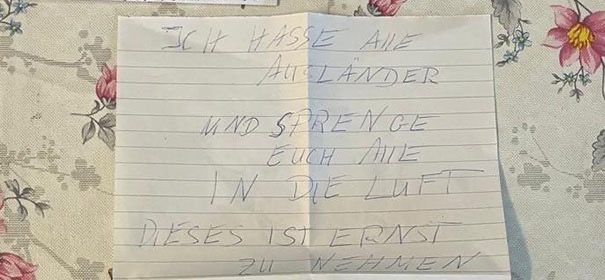 ICH HASSE AllE
AUSLÄNDER
UND SPRENGE
EUCH AllE
IN DIE LUFT
DIESES IST ERNST
ZU NEHMEN